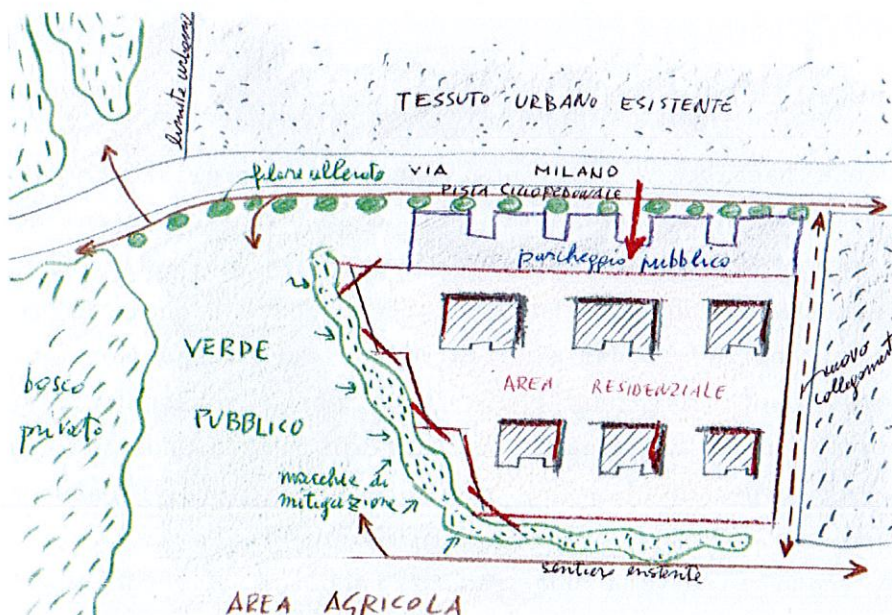 limite urbano
TESSUTO URBANO ESISTENTE
filare alberato
VIA MILANO
PISTA CICLOPEDONALE
parcheggio pubblico
VERDE
PUBBLICO
bosco
privato
AREA RESIDENZIALE
nuovo
collegamento
macchia di
mitigazione
sentiero esistente
AREA AGRICOLA